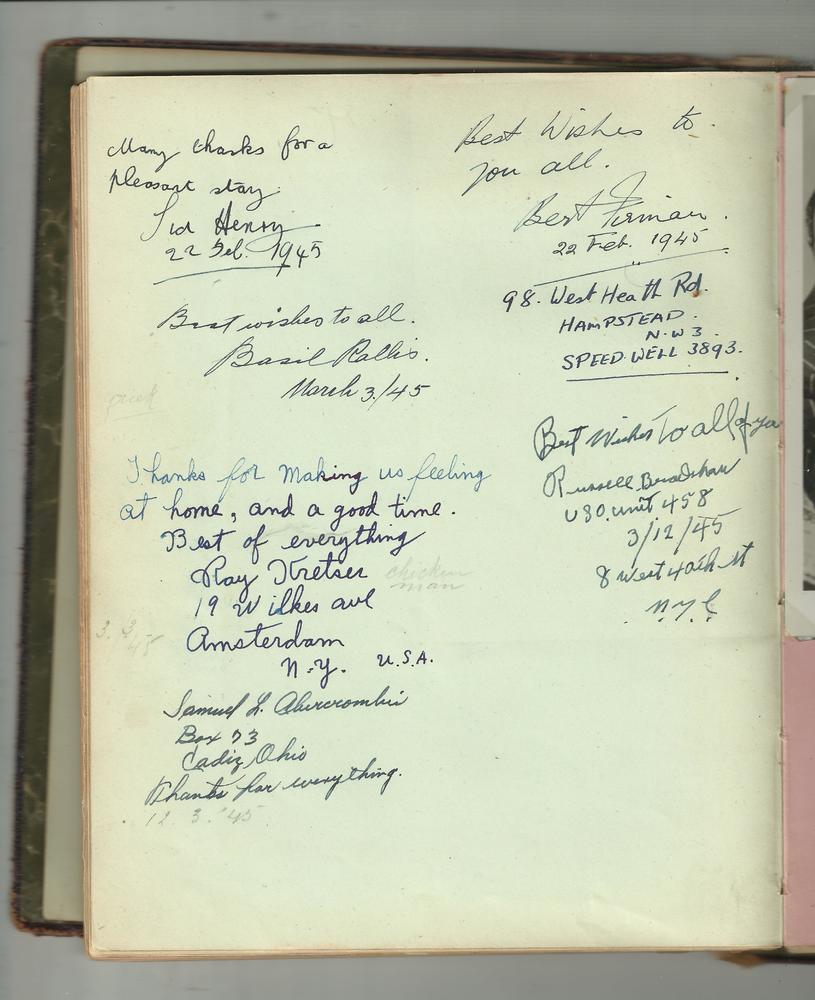 Many thanks for a
pleasant stay.
Sid Henry.
22 Feb. 1945
Best wishes to all.
Basil Rallis.
March 3/45
greek
Thanks for making us feeling
at home, and a good time.
Best of everything
Ray Kretser
chicken
man
19 Wilkes ave
Amsterdam
N.Y. U.S.A.
3. 3
45
Samuel L. Abercrombie
Box 73
Cadiz, Ohio
Thanks for everything.
12. 3. '45
Best Wishes to
you all.
Bert Firman.
22 Feb. 1945
98. West Heath Rd.
HAMPSTEAD.
N.W 3.
SPEEDWELL 3893.
Best Wishes To all of you
Russell Bradshaw
USO. unit 458
3/12/45
8 West 40th St
N.Y.C